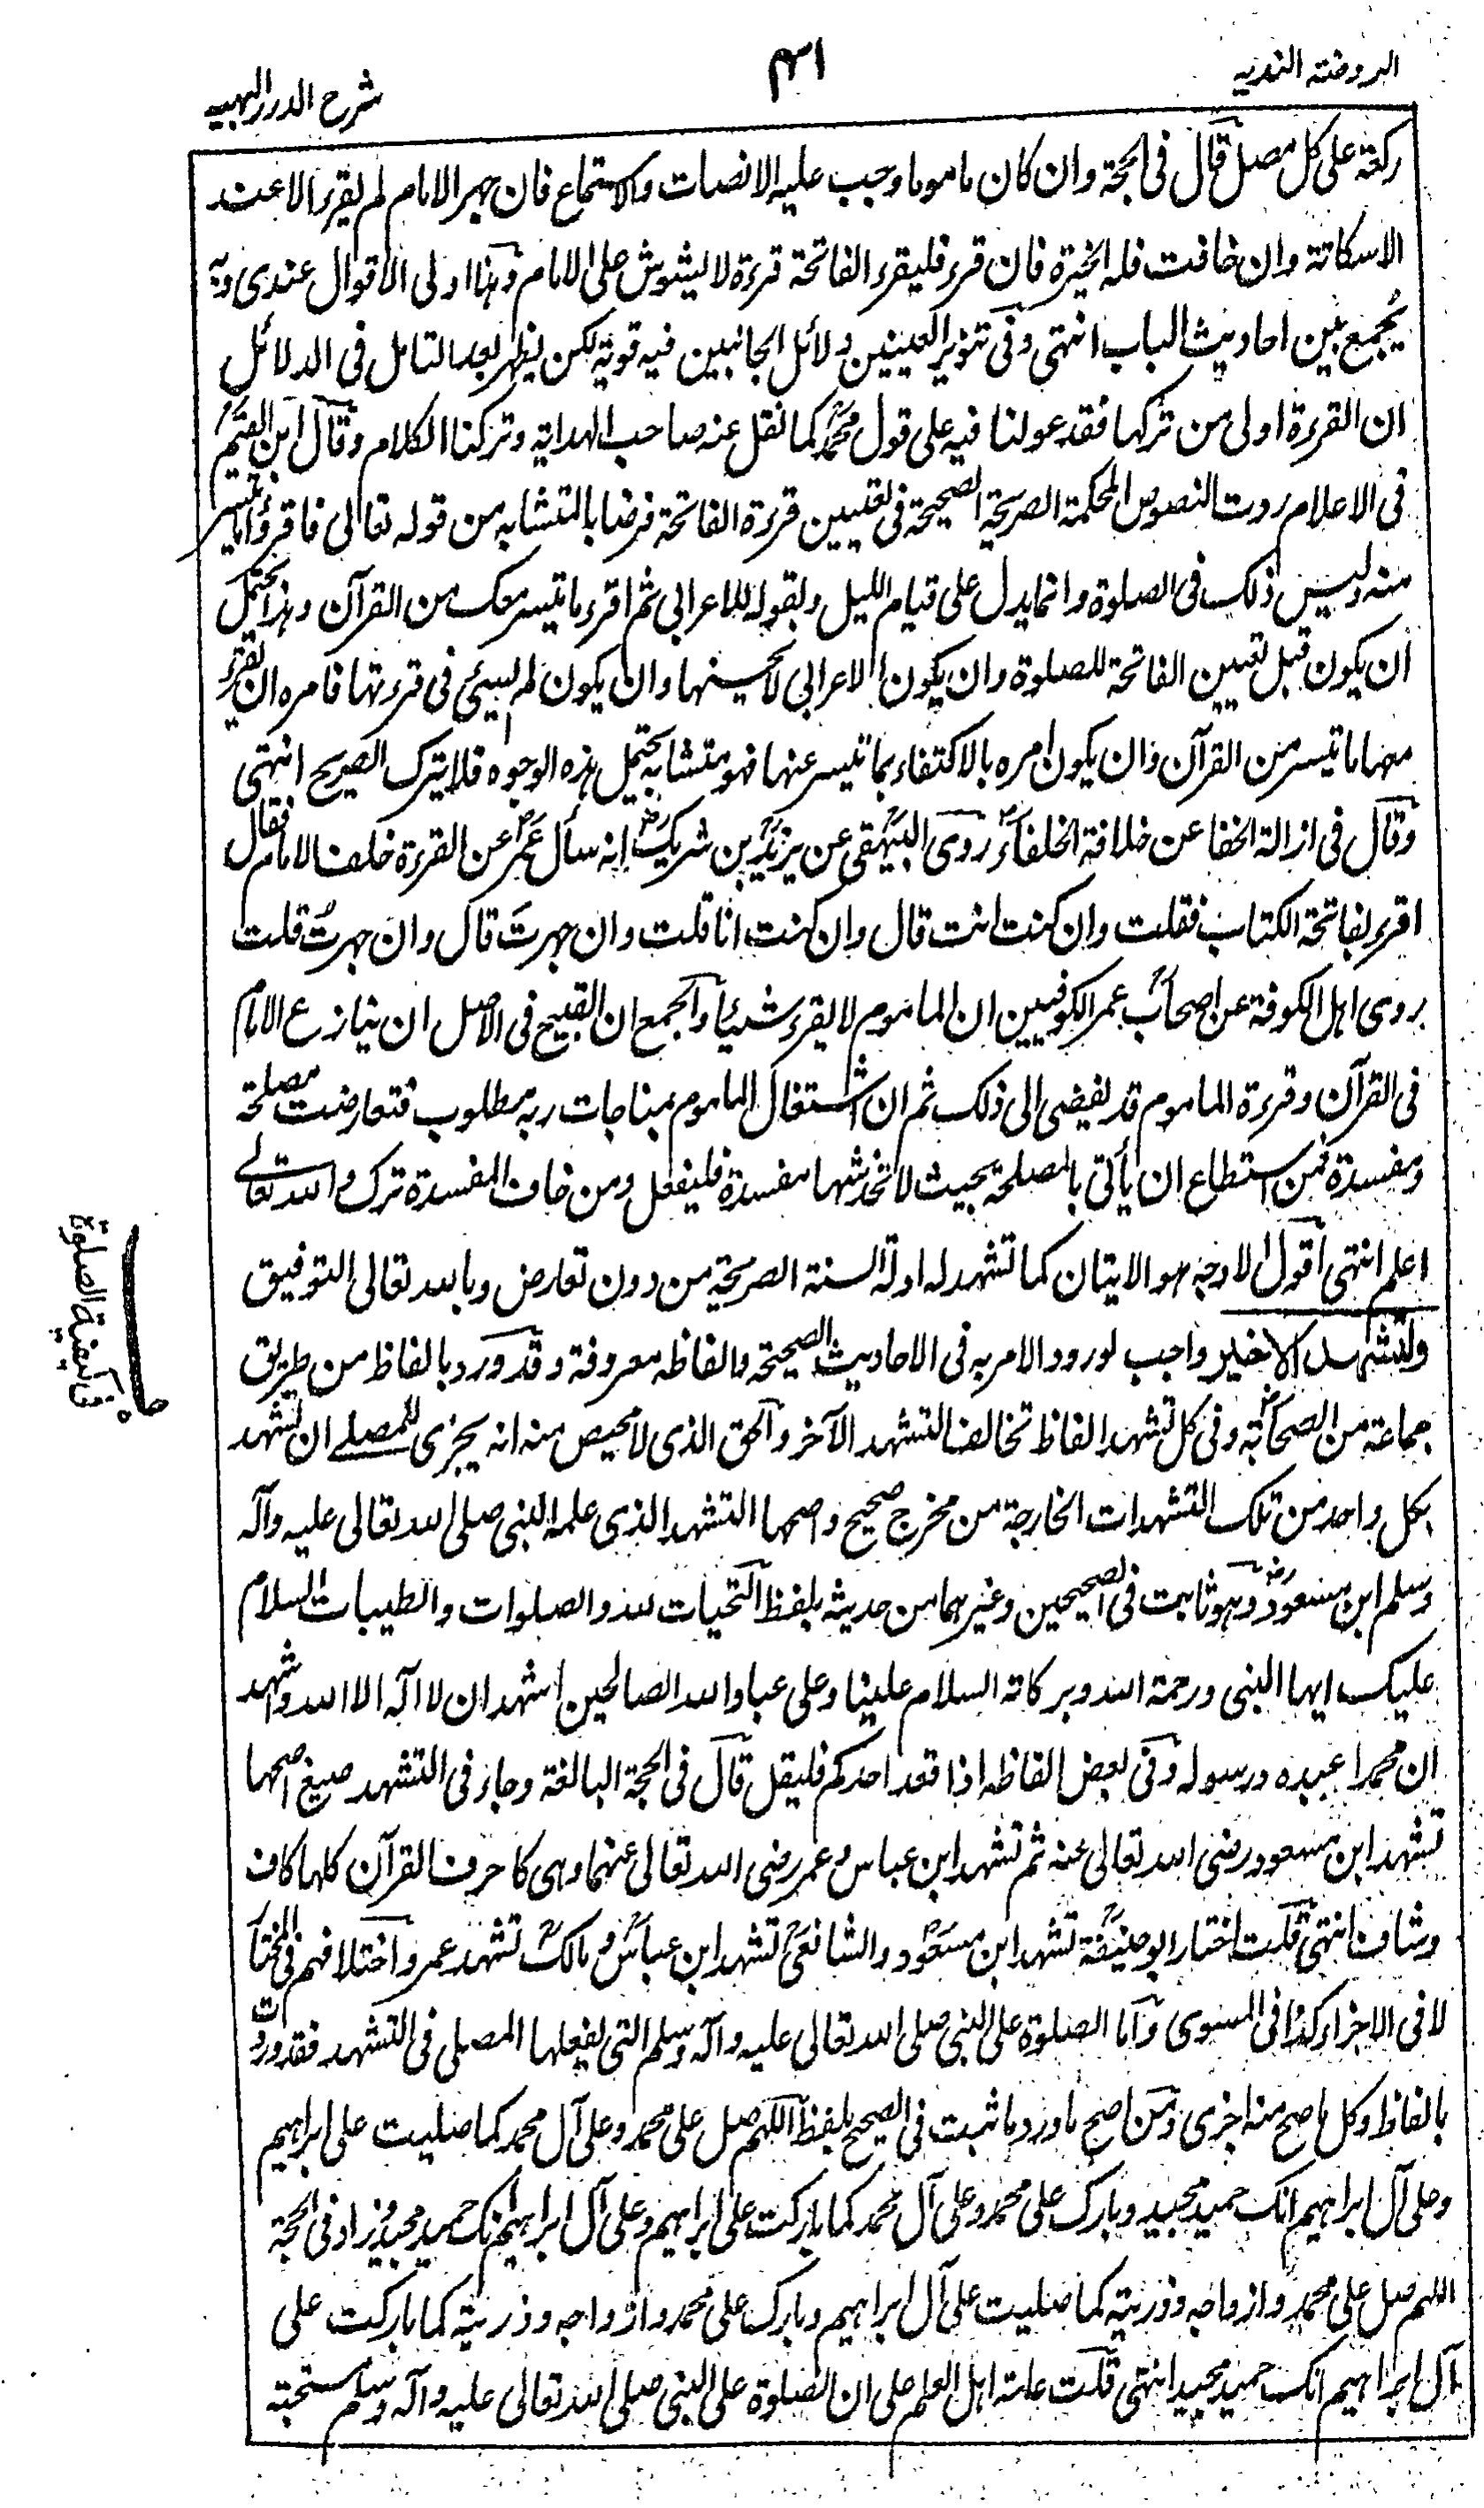 الروضته الندیه
۴۱
شرح الدرر البهیه
ركعة على كل مصل قال فى الحجة وان كان ماموما وجب عليه الانصات والاستماع فان جهر الامام لم يقرء الا عند
الاسكاتة وان خافت فله الخيرة فان قرء فليقرء الفاتحة قرءة لا يشوش على الامام وهذا اولى الاقوال عندى وبه
يُجمع بين احاديث الباب انتهى وفى تنوير العينين دلائل الجانبين فيه قوية لكن يظهر بعد التامل فى الدلائل
ان القرءة اولى من تركها فقد عولنا فيه على قول محمد كما نقل عنه صاحب الهداية وتركنا الكلام وقال ابن القيم
فى الاعلام ردت النصوص المحكمة الصريحة الصحيحة فى تعيين قرءة الفاتحة فرضا بالمتشابه من قوله تعالى فاقرؤا ما تيسر
منه وليس ذلك فى الصلوة وانما يدل على قيام الليل وبقوله للاعرابى ثم اقرء ما تيسر معك من القرآن وهذا يحتمل
ان يكون قبل تعيين الفاتحة للصلوة وان يكون الاعرابى لا يحسنها وان يكون لم يسئ فى قرءتها فامره ان يقرء
معها ما تيسر من القرآن وان يكون امره بالاكتفاء بما تيسر عنها فهو متشابه يحتمل هذه الوجوه فلا يترك الصريح انتهى
وقال فى ازالة الخفا عن خلافة الخلفاء روى البيهقى عن يزيد بن شريك انه سأل عمر عن القرءة خلف الامام فقال
اقرء بفاتحة الكتاب فقلت وان كنت انت قال وان كنت انا قلت وان جهرتَ قال وان جهرتُ قلت
روى اهل الكوفة عن اصحاب عمر الكوفيين ان الماموم لا يقرء شيئا والجمع ان القبيح فى الاصل ان ينازع الامام
فى القرآن وقرءة الماموم قد يفضى الى ذلك ثم ان اشتغال الماموم بمناجات ربه مطلوب فتعارضت مصلحة
ومفسدة فمن استطاع ان يأتى بالمصلحة بحيث لا تخدشها مفسدة فليفعل ومن خاف المفسدة ترك والله تعالى
اعلم انتهى اقول الاوجه هو الايتان كما تشهد له ادلة السنة الصريحة من دون تعارض وبالله تعالى التوفيق
والتشهد الاخير واجب لورود الامر به فى الاحاديث الصحيحة والفاظه معروفة وقد ورد بالفاظ من طريق
جماعة من الصحابة وفى كل تشهد الفاظ تخالف التشهد الآخر والحق الذى لا محيص منه انه يجزى للمصلے ان يتشهد
بكل واحد من تلك التشهدات الخارجة من مخرج صحيح واصحها التشهد الذى علمه النبى صلى الله تعالى عليه وآله
وسلم ابن مسعود وهو ثابت فى الصحيحين وغيرهما من حديثه بلفظ التحيات لله والصلوات والطيبات السلام
عليك ايها النبى ورحمة الله وبركاته السلام علينا وعلى عباد الله الصالحين اشهد ان لا اله الا الله واشهد
ان محمدا عبده ورسوله وفى بعض الفاظه اذا قعد احدكم فليقل قال فى الحجة البالغة وجاء فى التشهد صيغ اصحها
تشهد ابن مسعود رضى الله تعالى عنه ثم تشهد ابن عباس وعمر رضى الله تعالى عنهما وهى كاحرف القرآن كلها كاف
وشاف انتهى قلت اختار ابو حنيفة تشهد ابن مسعود والشافعى تشهد ابن عباس ومالك تشهد عمر واختلافهم فى المختار
لا فى الاجزاء كذا فى المسوى واما الصلوة على النبى صلى الله تعالى عليه وآله وسلم التى يفعلها المصلى فى التشهد فقد وردت
بالفاظ وكل ما صح منه اجزى ومن اصح ما ورد ما ثبت فى الصحيح بلفظ اللهم صل على محمد وعلى آل محمد كما صليت على ابراهيم
وعلى آل ابراهيم انك حميد مجيد وبارك على محمد وعلى آل محمد كما باركت على ابراهيم وعلى آل ابراهيم انك حميد مجيد وزاد فى الحجة
اللهم صل على محمد وازواجه وذريته كما صليت على آل ابراهيم وبارك على محمد وازواجه وذريته كما باركت على
آل ابراهيم انك حميد مجيد انتهى قلت عامة اهل العلم على ان الصلوة على النبى صلى الله تعالى عليه وآله وسلم مستحبة
كيفية الصلوة